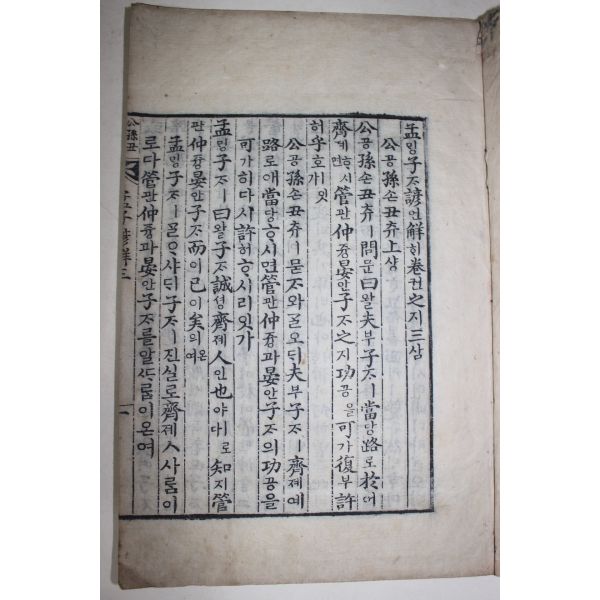 孟밍子ᄌᆞ諺언解ᄒᆡ卷권之지三삼
公공孫손丑츄上샹
公공孫손丑츄ㅣ問문曰왈夫부子ᄌᆞㅣ當당路로於어
齊졔ᄒᆞ시면管관仲듕晏안子ᄌᆞ之지功공을可가復부許
허乎호ㅣ잇가
公공孫손丑츄ㅣ묻ᄌᆞ와ᄀᆞᆯ오ᄃᆡ夫부子ᄌᆞㅣ齊졔예
路로애當당ᄒᆞ시면管관仲듕과晏안子ᄌᆞ의功공을
可가히다시許허ᄒᆞ시리잇가
孟밍子ᄌᆞㅣ曰왈子ᄌᆞㅣ誠셩齊졔人인也야ㅣ로다知지管
관仲듕晏안子ᄌᆞ而이已이矣의온여
孟밍子ᄌᆞㅣᄀᆞᆯᄋᆞ샤ᄃᆡ子ᄌᆞㅣ진실로齊졔人사ᄅᆞᆷ이
로다管관仲듕과晏안子ᄌᆞ를알ᄯᆞᄅᆞᆷ이온여
公孫丑
孟子諺解三
一